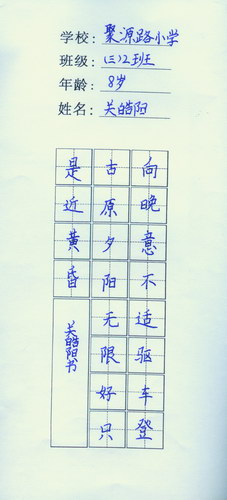 学校：聚源路小学
班级：（三）2班
年龄：8岁
姓名：关皓阳
向晚意不适驱车登
古原夕阳无限好只
是近黄昏
关皓阳书